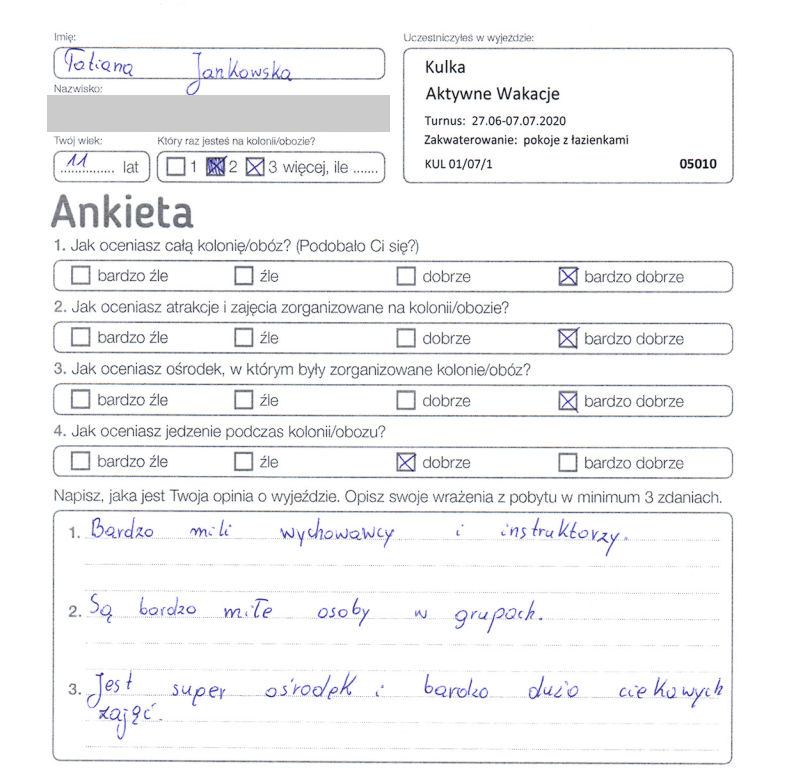 Imię:
Tatiana Jankowska
Nazwisko:
Twój wiek:
11 lat
Który raz jesteś na kolonii/obozie?
1 2 3 więcej, ile .......
Uczestniczyłeś w wyjeździe:
Kulka
Aktywne Wakacje
Turnus: 27.06-07.07.2020
Zakwaterowanie: pokoje z łazienkami
KUL 01/07/1 05010
Ankieta
1. Jak oceniasz całą kolonię/obóz? (Podobało Ci się?)
bardzo źle źle dobrze bardzo dobrze
2. Jak oceniasz atrakcje i zajęcia zorganizowane na kolonii/obozie?
bardzo źle źle dobrze bardzo dobrze
3. Jak oceniasz ośrodek, w którym były zorganizowane kolonie/obóz?
bardzo źle źle dobrze bardzo dobrze
4. Jak oceniasz jedzenie podczas kolonii/obozu?
bardzo źle źle dobrze bardzo dobrze
Napisz, jaka jest Twoja opinia o wyjeździe. Opisz swoje wrażenia z pobytu w minimum 3 zdaniach.
1. Bardzo mili wychowawcy i instruktorzy.
2. Są bardzo miłe osoby w grupach.
3. Jest super ośrodek i bardzo dużo ciekawych
zajęć.